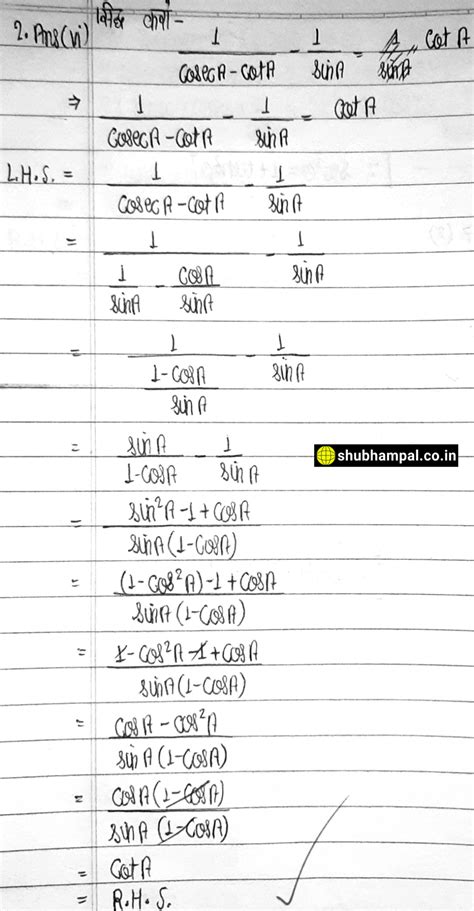 2. Ans(vi) सिद्ध करो -
1/(cosecA - cotA) - 1/sinA = cotA
⇒ 1/(cosecA - cotA) - 1/sinA = cotA
L.H.S. = 1/(cosecA - cotA) - 1/sinA
= 1/(1/sinA - cosA/sinA) - 1/sinA
= 1/((1-cosA)/sinA) - 1/sinA
= sinA/(1-cosA) - 1/sinA
shubhampal.co.in
= (sin²A - 1 + cosA)/(sinA(1-cosA))
= ((1-cos²A) - 1 + cosA)/(sinA(1-cosA))
= (1 - cos²A - 1 + cosA)/(sinA(1-cosA))
= (cosA - cos²A)/(sinA(1-cosA))
= cosA(1-cosA)/(sinA(1-cosA))
= cotA
= R.H.S.